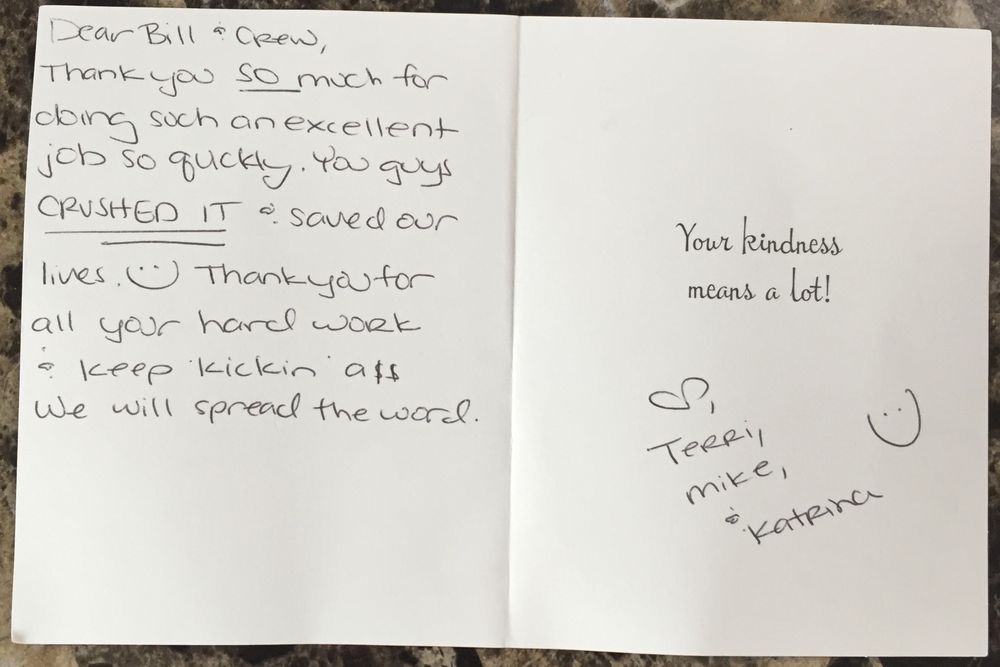 Dear Bill & Crew,
Thank you SO much for
doing such an excellent
job so quckly. You guys
CRUSHED IT & saved our
lives. Thank you for
all your hard work
& keep 'kickin' a$$
We will spread the word.
Your kindness
means a lot!
Terri,
mike,
& Katrina